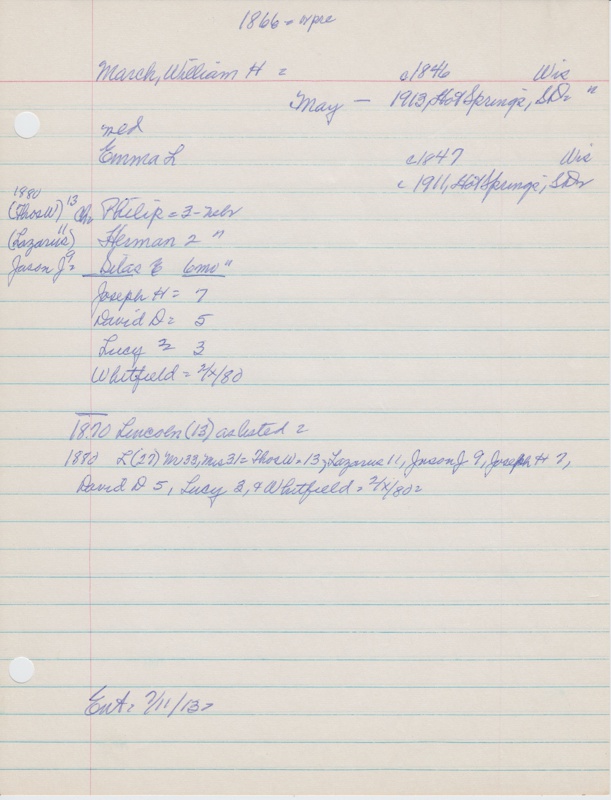 1866 = wpce
March, William H = c1846 Wis
May - 1913, Hot Springs, SD= "
med
Emma L c1847 Wis
c 1911, Hot Springs, SD=
1880
(Thos W) 13 Ch= Philip = 3 - Nebr
(Lazarus) 11 Herman 2 "
Jason J 9= Silas E 6mo "
Joseph H = 7
David D = 5
Lucy = 3
Whitfield = 2/x/80
1870 Lincoln (13) as listed =
1880 L(27) Mr 33, Mrs 31 = Thos W = 13, Lazarus 11, Jason J 9, Joseph H 7,
David D 5, Lucy 3, + Whitfield = 2/x/80 =
Ent = 7/11/13 =